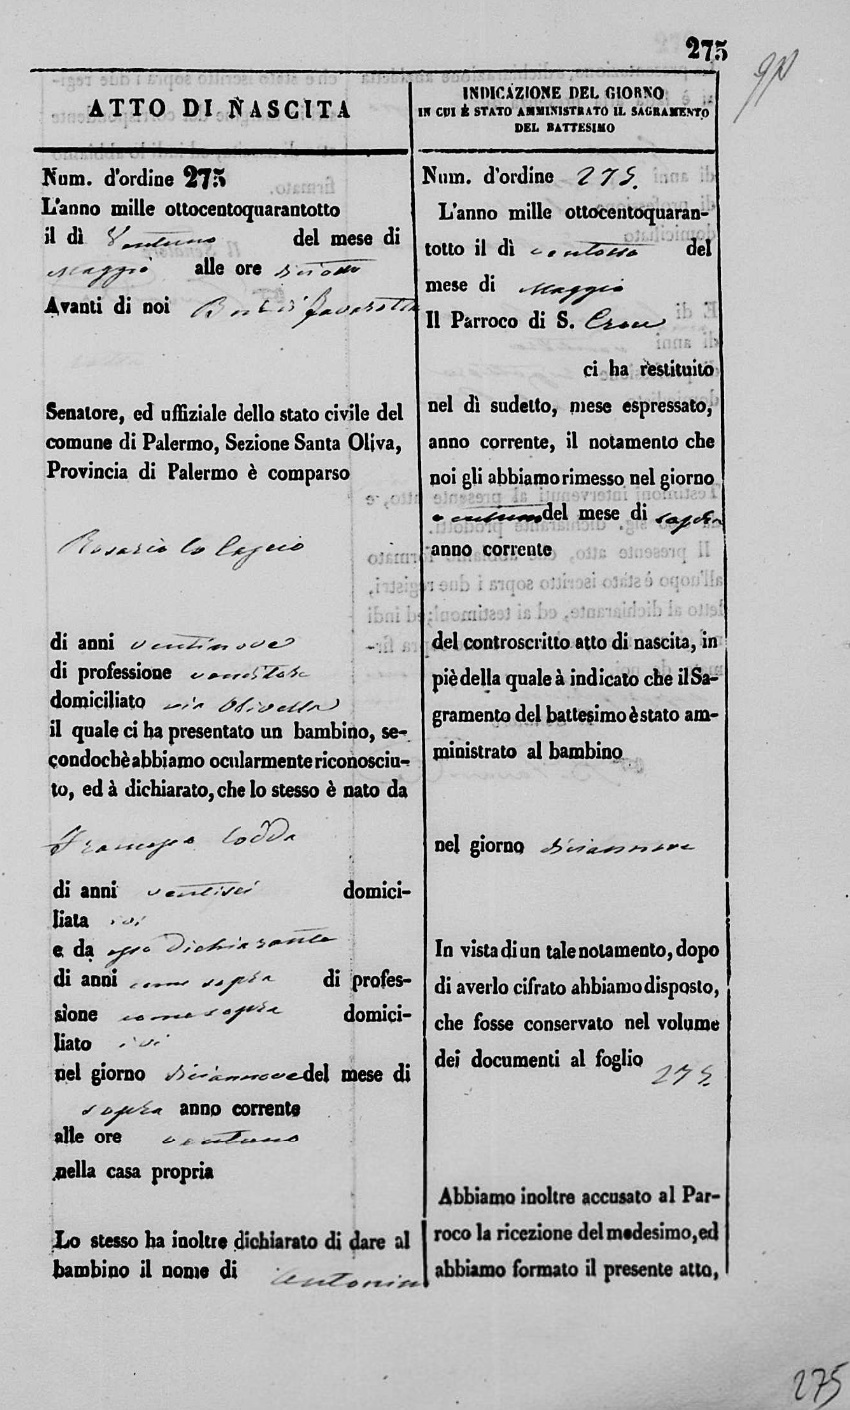 275
gp
ATTO DI NASCITA
Num. d'ordine 275
L'anno mille ottocentoquarantotto
il dì Ventuno del mese di
Maggio alle ore
Avanti di noi
Senatore, ed uffiziale dello stato civile del
comune di Palermo, Sezione Santa Oliva,
Provincia di Palermo è comparso
Rosario Lo
di anni ventinove
di professione venditore
domiciliato via Olivella
il quale ci ha presentato un bambino, se-
condochè abbiamo ocularmente riconosciu-
to, ed à dichiarato, che lo stesso è nato da
Francesca
di anni ventisei domici-
liata ivi
e da esso Dichiarante
di anni come sopra di profes-
sione come sopra domici-
liato ivi
nel giorno diciannove del mese di
sopra anno corrente
alle ore ventuno
nella casa propria
Lo stesso ha inoltre dichiarato di dare al
bambino il nome di Antonino
INDICAZIONE DEL GIORNO
IN CUI È STATO AMMINISTRATO IL SAGRAMENTO
DEL BATTESIMO
Num. d'ordine 275.
L'anno mille ottocentoquaran-
totto il dì ventotto del
mese di Maggio
Il Parroco di S. Croce
ci ha restituito
nel dì sudetto, mese espressato,
anno corrente, il notamento che
noi gli abbiamo rimesso nel giorno
ventuno del mese di sopra
anno corrente
del controscritto atto di nascita, in
piè della quale à indicato che il Sa-
gramento del battesimo è stato am-
ministrato al bambino
nel giorno diciannove
In vista di un tale notamento, dopo
di averlo cifrato abbiamo disposto,
che fosse conservato nel volume
dei documenti al foglio
275
Abbiamo inoltre accusato al Par-
roco la ricezione del medesimo, ed
abbiamo formato il presente atto,
275